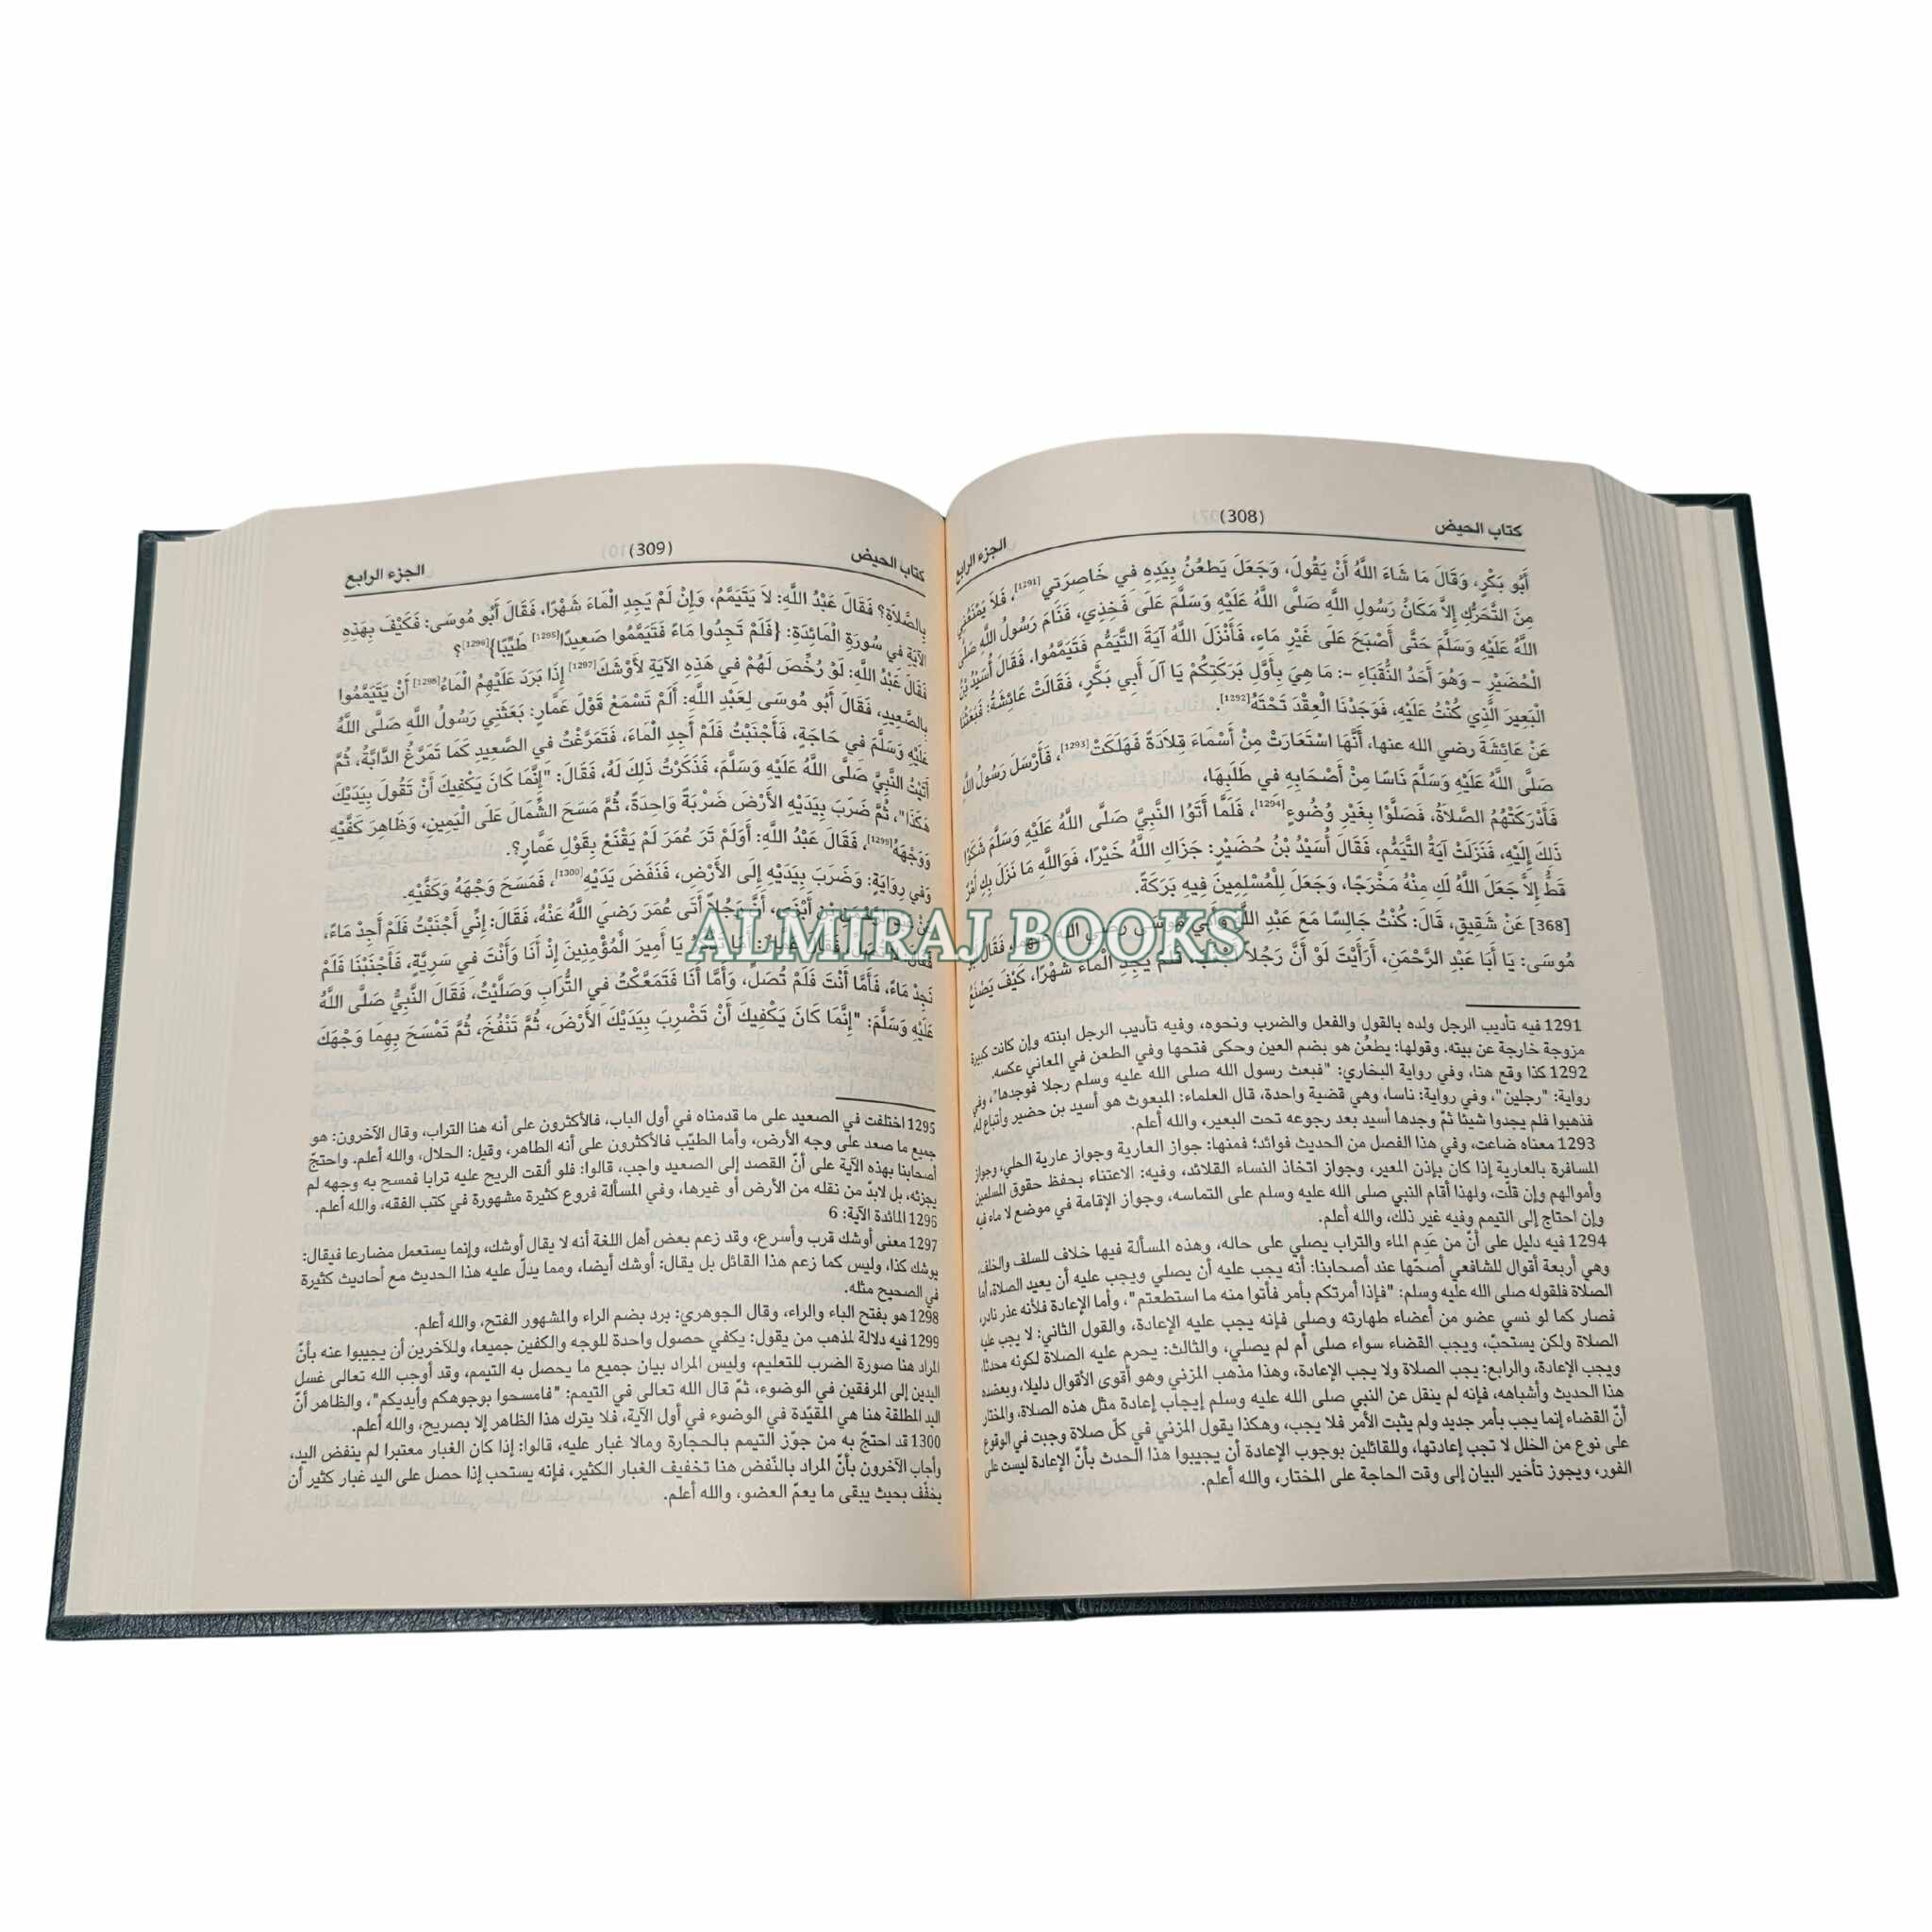 كتاب الحيض (308) الجزء الرابع
أَبُو بَكْرٍ، وَقَالَ مَا شَاءَ اللَّهُ أَنْ يَقُولَ، وَجَعَلَ يَطعُنُ بِيَدِهِ فِي خَاصِرَتِي[1291]، فَلاَ يَمْنَعُنِي
مِنَ التَّحَرُّكِ إِلاَّ مَكَانُ رَسُولِ اللَّهِ صَلَّى اللَّهُ عَلَيْهِ وَسَلَّمَ عَلَى فَخِذِي، فَنَامَ رَسُولُ اللَّهِ صَلَّى
اللَّهُ عَلَيْهِ وَسَلَّمَ حَتَّى أَصْبَحَ عَلَى غَيْرِ مَاءٍ، فَأَنْزَلَ اللَّهُ آيَةَ التَّيَمُّمِ فَتَيَمَّمُوا، فَقَالَ أُسَيْدُ بْنُ
الْحُضَيْرِ – وَهُوَ أَحَدُ النُّقَبَاءِ –: مَا هِيَ بِأَوَّلِ بَرَكَتِكُمْ يَا آلَ أَبِي بَكْرٍ، فَقَالَتْ عَائِشَةُ: فَبَعَثْنَا
الْبَعِيرَ الَّذِي كُنْتُ عَلَيْهِ، فَوَجَدْنَا الْعِقْدَ تَحْتَهُ[1292].
عَنْ عَائِشَةَ رضي الله عنها، أَنَّهَا اسْتَعَارَتْ مِنْ أَسْمَاءَ قِلاَدَةً فَهَلَكَتْ[1293]، فَأَرْسَلَ رَسُولُ اللَّهِ
صَلَّى اللَّهُ عَلَيْهِ وَسَلَّمَ نَاسًا مِنْ أَصْحَابِهِ فِي طَلَبِهَا،
فَأَدْرَكَتْهُمُ الصَّلاَةُ، فَصَلَّوْا بِغَيْرِ وُضُوءٍ[1294]، فَلَمَّا أَتَوُا النَّبِيَّ صَلَّى اللَّهُ عَلَيْهِ وَسَلَّمَ شَكَوْا
ذَلِكَ إِلَيْهِ، فَنَزَلَتْ آيَةُ التَّيَمُّمِ، فَقَالَ أُسَيْدُ بْنُ حُضَيْرٍ: جَزَاكِ اللَّهُ خَيْرًا، فَوَاللَّهِ مَا نَزَلَ بِكِ أَمْرٌ
قَطُّ إِلاَّ جَعَلَ اللَّهُ لَكِ مِنْهُ مَخْرَجًا، وَجَعَلَ لِلْمُسْلِمِينَ فِيهِ بَرَكَةً.
[368] عَنْ شَقِيقٍ، قَالَ: كُنْتُ جَالِسًا مَعَ عَبْدِ اللَّهِ وَأَبِي مُوسَى رضي الله عنهما، فَقَالَ أَبُو
مُوسَى: يَا أَبَا عَبْدِ الرَّحْمَنِ، أَرَأَيْتَ لَوْ أَنَّ رَجُلاً أَجْنَبَ فَلَمْ يَجِدِ الْمَاءَ شَهْرًا، كَيْفَ يَصْنَعُ
1291 فيه تأديب الرجل ولده بالقول والفعل والضرب ونحوه، وفيه تأديب الرجل ابنته وإن كانت كبيرة
مزوجة خارجة عن بيته. وقولها: يطعُن هو بضم العين وحكى فتحها وفي الطعن في المعاني عكسه.
1292 كذا وقع هنا، وفي رواية البخاري: "فبعث رسول الله صلى الله عليه وسلم رجلا فوجدها"، وفي
رواية: "رجلين"، وفي رواية: ناسا، وهي قضية واحدة، قال العلماء: المبعوث هو أسيد بن حضير وأتباع له،
فذهبوا فلم يجدوا شيئا ثمّ وجدها أسيد بعد رجوعه تحت البعير، والله أعلم.
1293 معناه ضاعت، وفي هذا الفصل من الحديث فوائد؛ فمنها: جواز العارية وجواز عارية الحلي، وجواز
المسافرة بالعارية إذا كان بإذن المعير، وجواز اتخاذ النساء القلائد، وفيه: الاعتناء بحفظ حقوق المسلمين
وأموالهم وإن قلّت، ولهذا أقام النبي صلى الله عليه وسلم على التماسه، وجواز الإقامة في موضع لا ماء فيه
وإن احتاج إلى التيمم وفيه غير ذلك، والله أعلم.
1294 فيه دليل على أنّ من عَدِم الماء والتراب يصلي على حاله، وهذه المسألة فيها خلاف للسلف والخلف،
وهي أربعة أقوال للشافعي أصحّها عند أصحابنا: أنه يجب عليه أن يصلي ويجب عليه أن يعيد الصلاة، أما
الصلاة فلقوله صلى الله عليه وسلم: "فإذا أمرتكم بأمر فأتوا منه ما استطعتم"، وأما الإعادة فلأنه عذر نادر،
فصار كما لو نسي عضو من أعضاء طهارته وصلى فإنه يجب عليه الإعادة، والقول الثاني: لا يجب عليه
الصلاة ولكن يستحبّ، ويجب القضاء سواء صلى أم لم يصلي، والثالث: يحرم عليه الصلاة لكونه محدثا،
ويجب الإعادة، والرابع: يجب الصلاة ولا يجب الإعادة، وهذا مذهب المزني وهو أقوى الأقوال دليلا، ويعضده
هذا الحديث وأشباهه، فإنه لم ينقل عن النبي صلى الله عليه وسلم إيجاب إعادة مثل هذه الصلاة، والمختار
أنّ القضاء إنما يجب بأمر جديد ولم يثبت الأمر فلا يجب، وهكذا يقول المزني في كلّ صلاة وجبت في الوقوع
على نوع من الخلل لا تجب إعادتها، وللقائلين بوجوب الإعادة أن يجيبوا هذا الحدث بأنّ الإعادة ليست على
الفور، ويجوز تأخير البيان إلى وقت الحاجة على المختار، والله أعلم.
كتاب الحيض (309) الجزء الرابع
بِالصَّلاَةِ؟ فَقَالَ عَبْدُ اللَّهِ: لاَ يَتَيَمَّمُ، وَإِنْ لَمْ يَجِدِ الْمَاءَ شَهْرًا، فَقَالَ أَبُو مُوسَى: فَكَيْفَ بِهَذِهِ
الآيَةِ فِي سُورَةِ الْمَائِدَةِ: {فَلَمْ تَجِدُوا مَاءً فَتَيَمَّمُوا صَعِيدًا[1295] طَيِّبًا}[1296]؟
فَقَالَ عَبْدُ اللَّهِ: لَوْ رُخِّصَ لَهُمْ فِي هَذِهِ الآيَةِ لأَوْشَكَ[1297] إِذَا بَرَدَ عَلَيْهِمُ الْمَاءُ[1298] أَنْ يَتَيَمَّمُوا
بِالصَّعِيدِ، فَقَالَ أَبُو مُوسَى لِعَبْدِ اللَّهِ: أَلَمْ تَسْمَعْ قَوْلَ عَمَّارٍ: بَعَثَنِي رَسُولُ اللَّهِ صَلَّى اللَّهُ
عَلَيْهِ وَسَلَّمَ فِي حَاجَةٍ، فَأَجْنَبْتُ فَلَمْ أَجِدِ الْمَاءَ، فَتَمَرَّغْتُ فِي الصَّعِيدِ كَمَا تَمَرَّغُ الدَّابَّةُ، ثُمَّ
أَتَيْتُ النَّبِيَّ صَلَّى اللَّهُ عَلَيْهِ وَسَلَّمَ، فَذَكَرْتُ ذَلِكَ لَهُ، فَقَالَ: "إِنَّمَا كَانَ يَكْفِيكَ أَنْ تَقُولَ بِيَدَيْكَ
هَكَذَا"، ثُمَّ ضَرَبَ بِيَدَيْهِ الأَرْضَ ضَرْبَةً وَاحِدَةً، ثُمَّ مَسَحَ الشِّمَالَ عَلَى الْيَمِينِ، وَظَاهِرَ كَفَّيْهِ
وَوَجْهَهُ[1299]، فَقَالَ عَبْدُ اللَّهِ: أَوَلَمْ تَرَ عُمَرَ لَمْ يَقْنَعْ بِقَوْلِ عَمَّارٍ؟.
وَفِي رِوَايَةٍ: وَضَرَبَ بِيَدَيْهِ إِلَى الأَرْضِ، فَنَفَضَ يَدَيْهِ[1300]، فَمَسَحَ وَجْهَهُ وَكَفَّيْهِ.
بْنِ أَبْزَى، أَنَّ رَجُلاً أَتَى عُمَرَ رَضِيَ اللَّهُ عَنْهُ، فَقَالَ: إِنِّي أَجْنَبْتُ فَلَمْ أَجِدْ مَاءً،
فَقَالَ عَمَّارٌ: أَمَا تَذْكُرُ يَا أَمِيرَ الْمُؤْمِنِينَ إِذْ أَنَا وَأَنْتَ فِي سَرِيَّةٍ، فَأَجْنَبْنَا فَلَمْ
نَجِدْ مَاءً، فَأَمَّا أَنْتَ فَلَمْ تُصَلِّ، وَأَمَّا أَنَا فَتَمَعَّكْتُ فِي التُّرَابِ وَصَلَّيْتُ، فَقَالَ النَّبِيُّ صَلَّى اللَّهُ
عَلَيْهِ وَسَلَّمَ: "إِنَّمَا كَانَ يَكْفِيكَ أَنْ تَضْرِبَ بِيَدَيْكَ الأَرْضَ، ثُمَّ تَنْفُخَ، ثُمَّ تَمْسَحَ بِهِمَا وَجْهَكَ
1295 اختلفت في الصعيد على ما قدمناه في أول الباب، فالأكثرون على أنه هنا التراب، وقال الآخرون: هو
جميع ما صعد على وجه الأرض، وأما الطيّب فالأكثرون على أنه الطاهر، وقيل: الحلال، والله أعلم. واحتجّ
أصحابنا بهذه الآية على أنّ القصد إلى الصعيد واجب، قالوا: فلو ألقت الريح عليه ترابا فمسح به وجهه لم
يجزئه، بل لابدّ من نقله من الأرض أو غيرها، وفي المسألة فروع كثيرة مشهورة في كتب الفقه، والله أعلم.
1296 المائدة الآية: 6
1297 معنى أوشك قرب وأسرع، وقد زعم بعض أهل اللغة أنه لا يقال أوشك، وإنما يستعمل مضارعا فيقال:
يوشك كذا، وليس كما زعم هذا القائل بل يقال: أوشك أيضا، ومما يدلّ عليه هذا الحديث مع أحاديث كثيرة
في الصحيح مثله.
1298 هو بفتح الباء والراء، وقال الجوهري: برد بضم الراء والمشهور الفتح، والله أعلم.
1299 فيه دلالة لمذهب من يقول: يكفي حصول واحدة للوجه والكفين جميعا، وللآخرين أن يجيبوا عنه بأنّ
المراد هنا صورة الضرب للتعليم، وليس المراد بيان جميع ما يحصل به التيمم، وقد أوجب الله تعالى غسل
اليدين إلى المرفقين في الوضوء، ثمّ قال الله تعالى في التيمم: "فامسحوا بوجوهكم وأيديكم"، والظاهر أنّ
اليد المطلقة هنا هي المقيّدة في الوضوء في أول الآية، فلا يترك هذا الظاهر إلا بصريح، والله أعلم.
1300 قد احتجّ به من جوّز التيمم بالحجارة ومالا غبار عليه، قالوا: إذا كان الغبار معتبرا لم ينفض اليد،
وأجاب الآخرون بأنّ المراد بالنّفض هنا تخفيف الغبار الكثير، فإنه يستحب إذا حصل على اليد غبار كثير أن
يخفّف بحيث يبقى ما يعمّ العضو، والله أعلم.
ALMIRAJ BOOKS